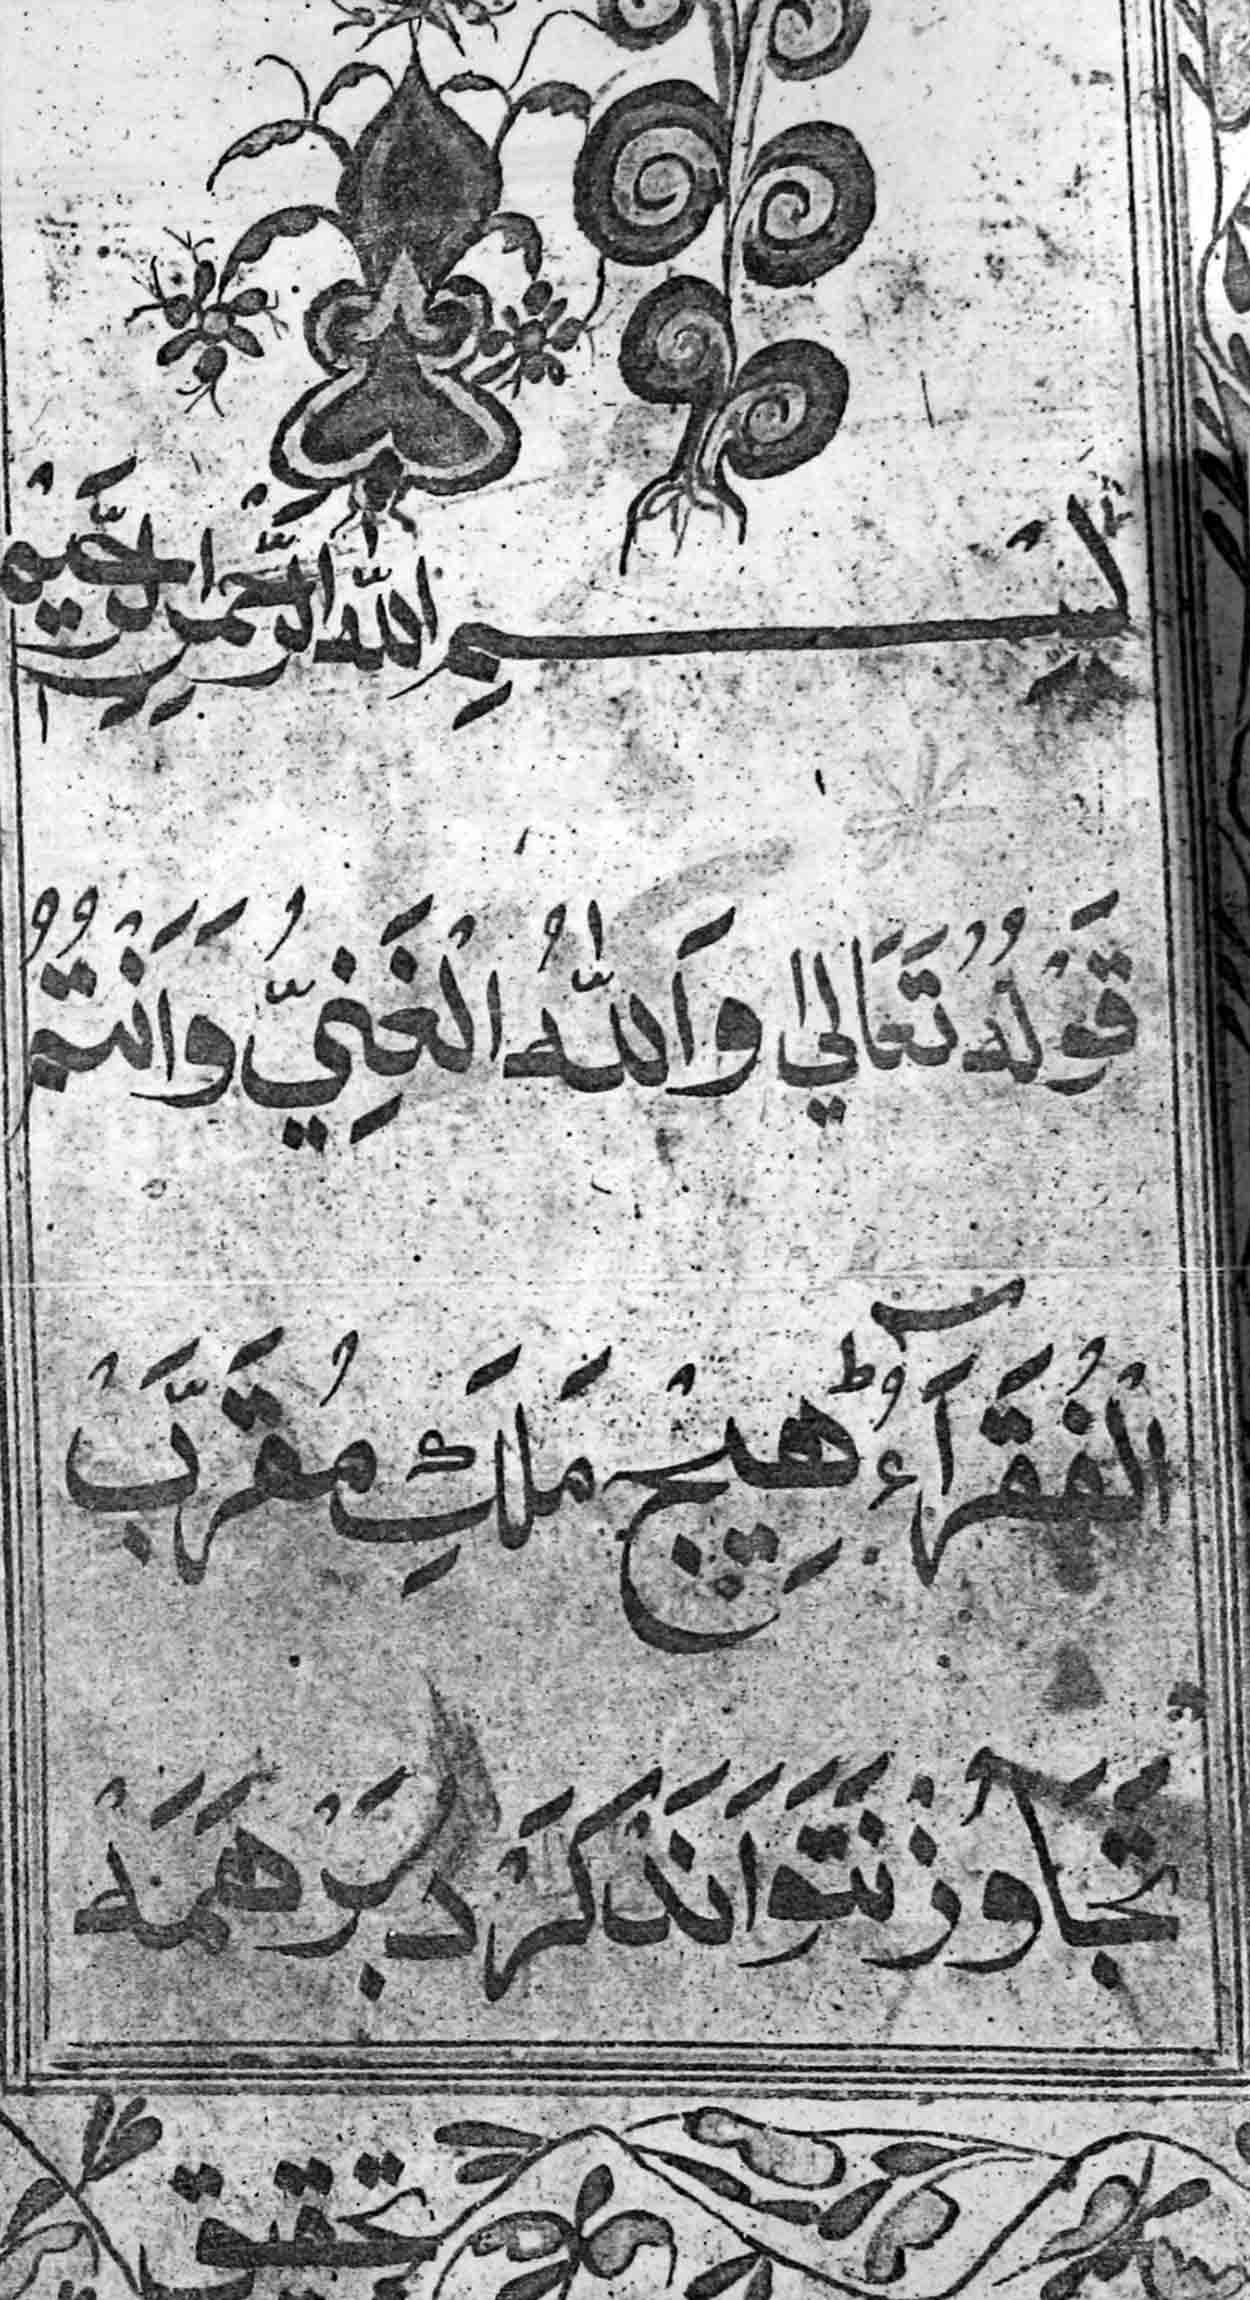 بِسْمِ اللّٰهِ الرَّحْمٰنِ الرَّحِيْمِ
قَوْلُهُ تَعَالٰي وَاَللّٰهُ الْغَنِيُّ وَاَنْتُمُ
الْفُقَرَآءُ ط هِيْچْ مَلَكِ مُقَرَّبْ
تَجَاوُزْ نَتَوَانَدْ كَرْد بَرْ هَمَهْ
تحقيق